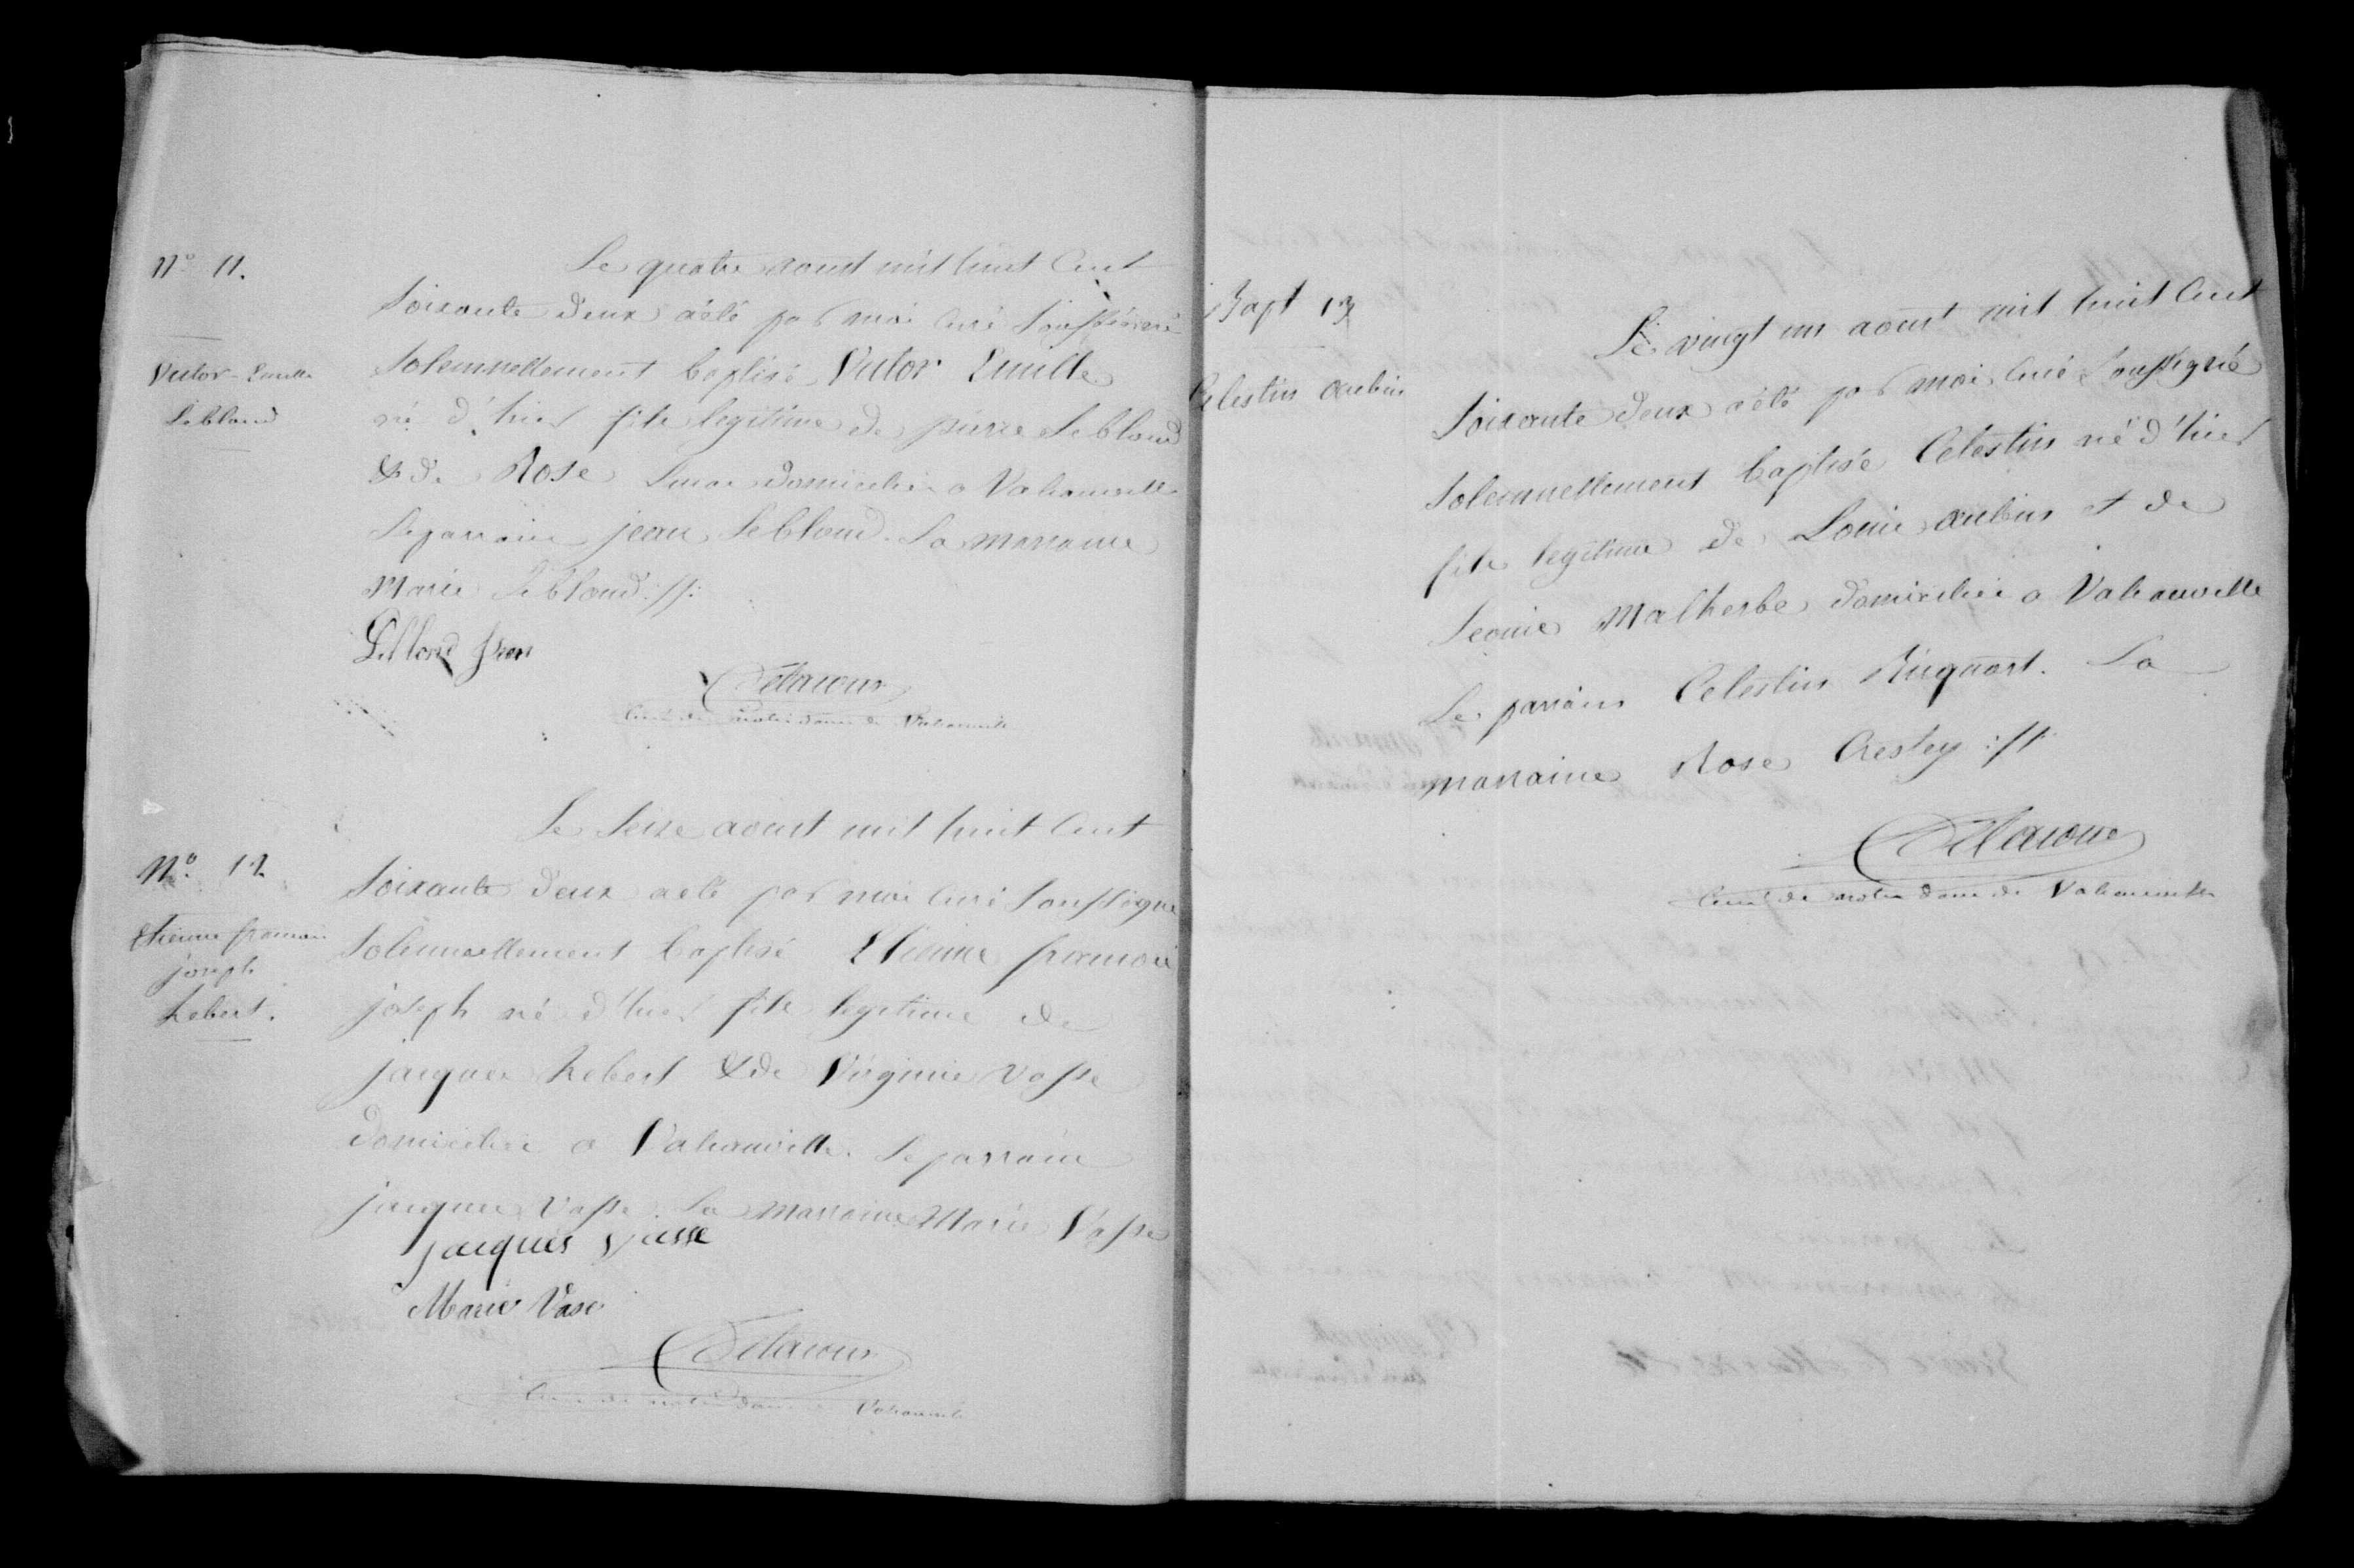 N° 11.
Victor-Emille
Leblond
Le quatre aoust mil huit Cent
Soixante deux a été par moi curé Soussigné
Solemnellement baptisé Victor Emille
né d'hier fils legitime de pierre Leblond
& de Rose domicilié a Valcanville
Le parrain jean Leblond. La marraine
Marie Leblond .//.
Leblond jean
Delacour
Curé de notre dame de Valcanville
N° 12
Etienne francois
joseph
hebert.
Le Seize aoust mil huit Cent
Soixante deux a été par moi curé Soussigné
Solemnellement baptisé Etienne francois
joseph né d'hier fils legitime de
jacques hebert & de Virginie Vasse
domicilié a Valcanville. Le parrain
jacques Vasse. La marraine Marie Vasse
jacques Vasse
Marie Vase
Delacour
Curé de notre dame de Valcanville
Bapt 13
Celestin aubin
Le vingt un aoust mil huit Cent
Soixante deux a été par moi curé Soussigné
Solemnellement baptisé Celestin né d'hier
fils legitime de Louis aubin et de
Leonie Malherbe domicilié a Valcanville
Le parrain Celestin. La
marraine Rose Crestey .//.
Delacour
Curé de notre dame de Valcanville